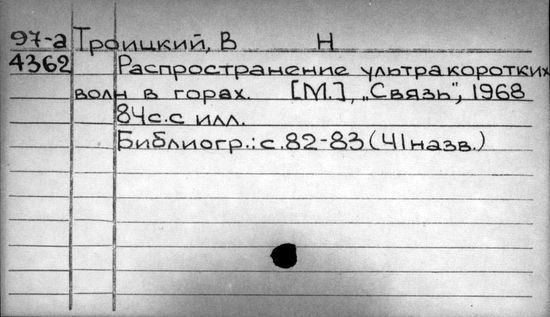 97-а Троицкий, В Н
4362 Распространение ультракоротких
волн в горах. [М.], „Связь", 1968
84с.с илл.
Библиогр.: с.82-83 (41назв.)